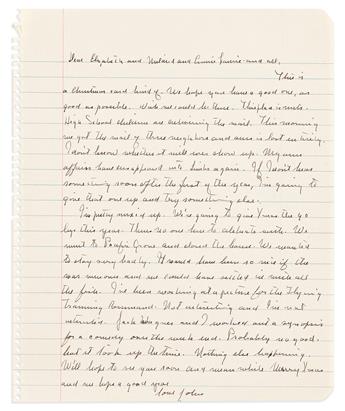 Dear Elizabeth and Milard and Annie Laurie and all,
This is
a christmas card kind of. We hope you have a good one, as
good as possible. Wish we could be there. This place is nuts.
High School children are delivering the mail. This morning
we got the mail of three neighbors and ours is lost entirely.
I don't know whether it will ever show up. My army
affairs have disappeared into limbo again. If I don't hear
something soon after the first of the year, I'm going to
give that one up and try something else.
I'm pretty mixed up. We're going to give Xmas the go
bye this year. There's no one here to celebrate with. We
went to Pacific Grove and closed the house. We wanted
to stay very badly. It would have been so nice if the
war were over and we could have settled in with all
the fire. I've been working at a picture for the Flying
Training Command. Not interesting and I'm not
interested. Jack and I worked out a synopsis
for a comedy over the week end. Probably no good
but it took up the time. Nothing else happening.
Will hope to see you soon and mean while Merry Xmas
and we hope a good year
love John